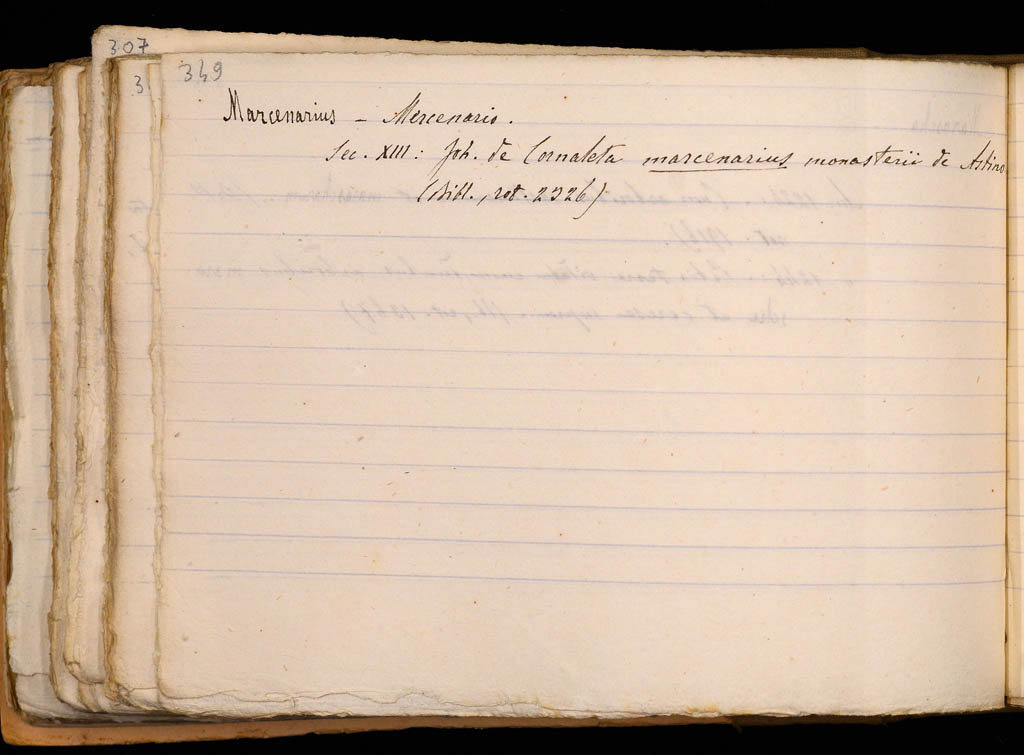 307
349
3
Marcenarius - Mercenario.
Sec. XIII: Joh. de Cornaleta marcenarius monasterii de Astino
(Bibl., rot. 2326)